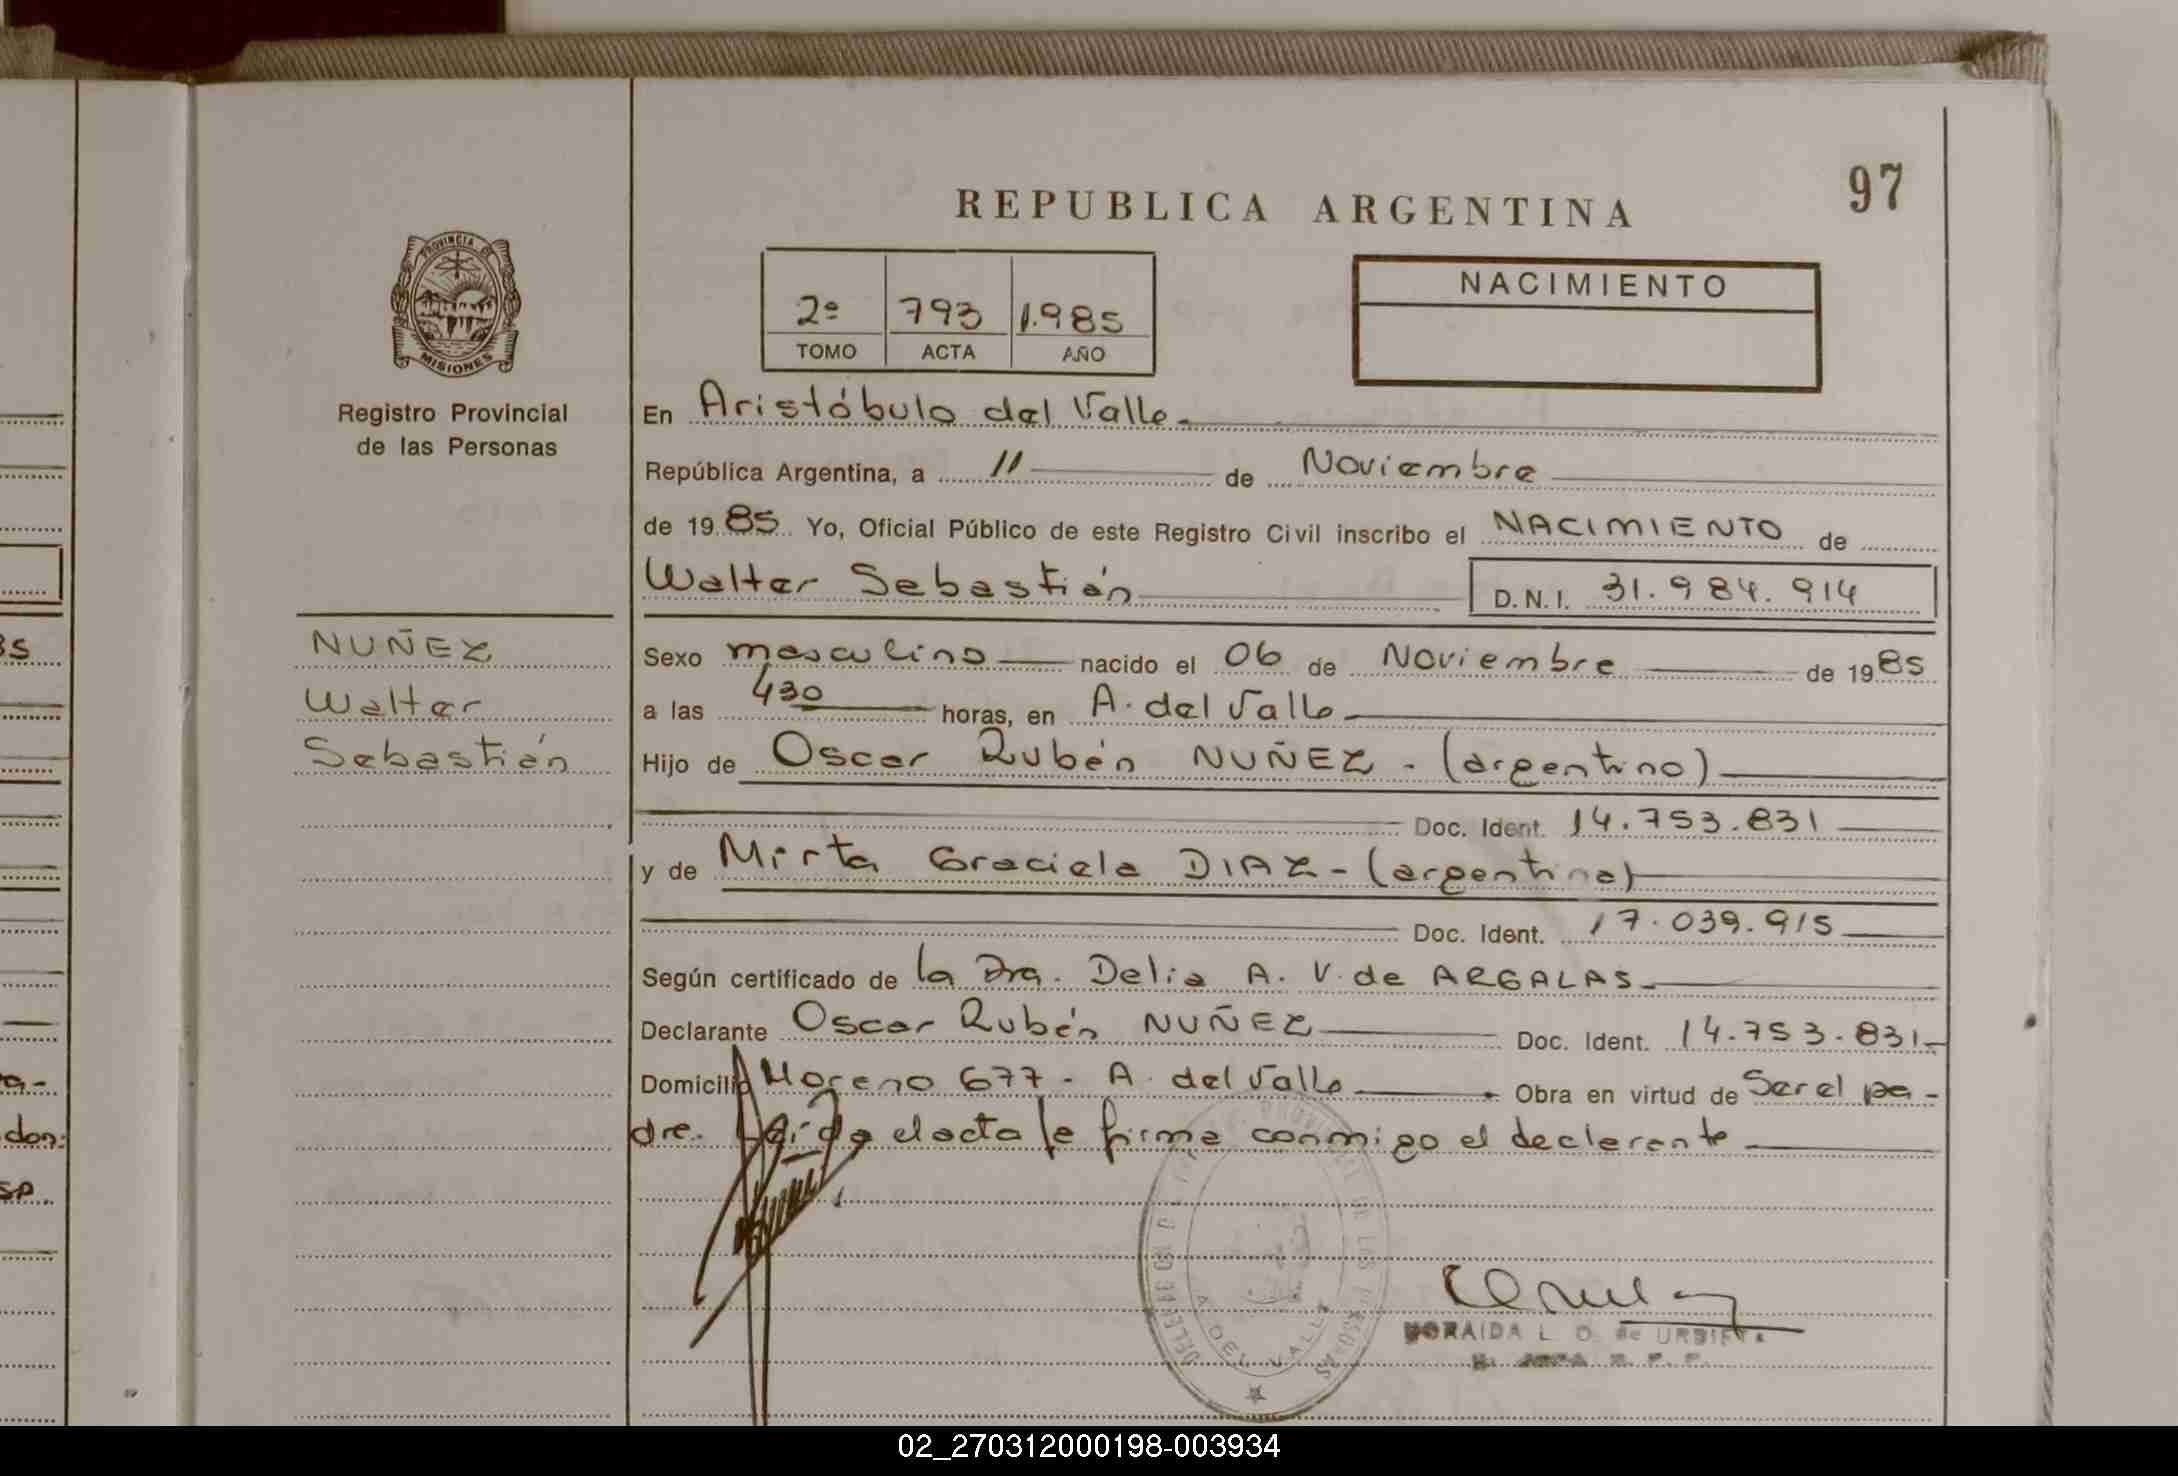 97
REPUBLICA ARGENTINA
PROVINCIA DE
MISIONES
Registro Provincial
de las Personas
2º 793 1.985
TOMO ACTA AÑO
NACIMIENTO
En Aristóbulo del Valle.
República Argentina, a 11 de Noviembre
de 1985 Yo, Oficial Público de este Registro Civil inscribo el NACIMIENTO de
Walter Sebastián D.N.I. 31.984.914
NUÑEZ
Walter
Sebastián
Sexo masculino nacido el 06 de Noviembre de 1985
a las 430 horas, en A. del Valle
Hijo de Oscar Rubén NUÑEZ - (argentino)
Doc. Ident. 14.753.831
y de Mirta Graciela DIAZ - (argentina)
Doc. Ident. 17.039.915
Según certificado de la Dra. Delia A. V. de ARGALAS
Declarante Oscar Rubén NUÑEZ Doc. Ident. 14.753.831
Domicilio Moreno 677 - A. del Valle Obra en virtud de Ser el pa-
dre. Leida el acta le firma conmigo el declarante
A. DEL VALLE
L. O. de URBIETA
85
a-
don:
sp
02_270312000198-003934